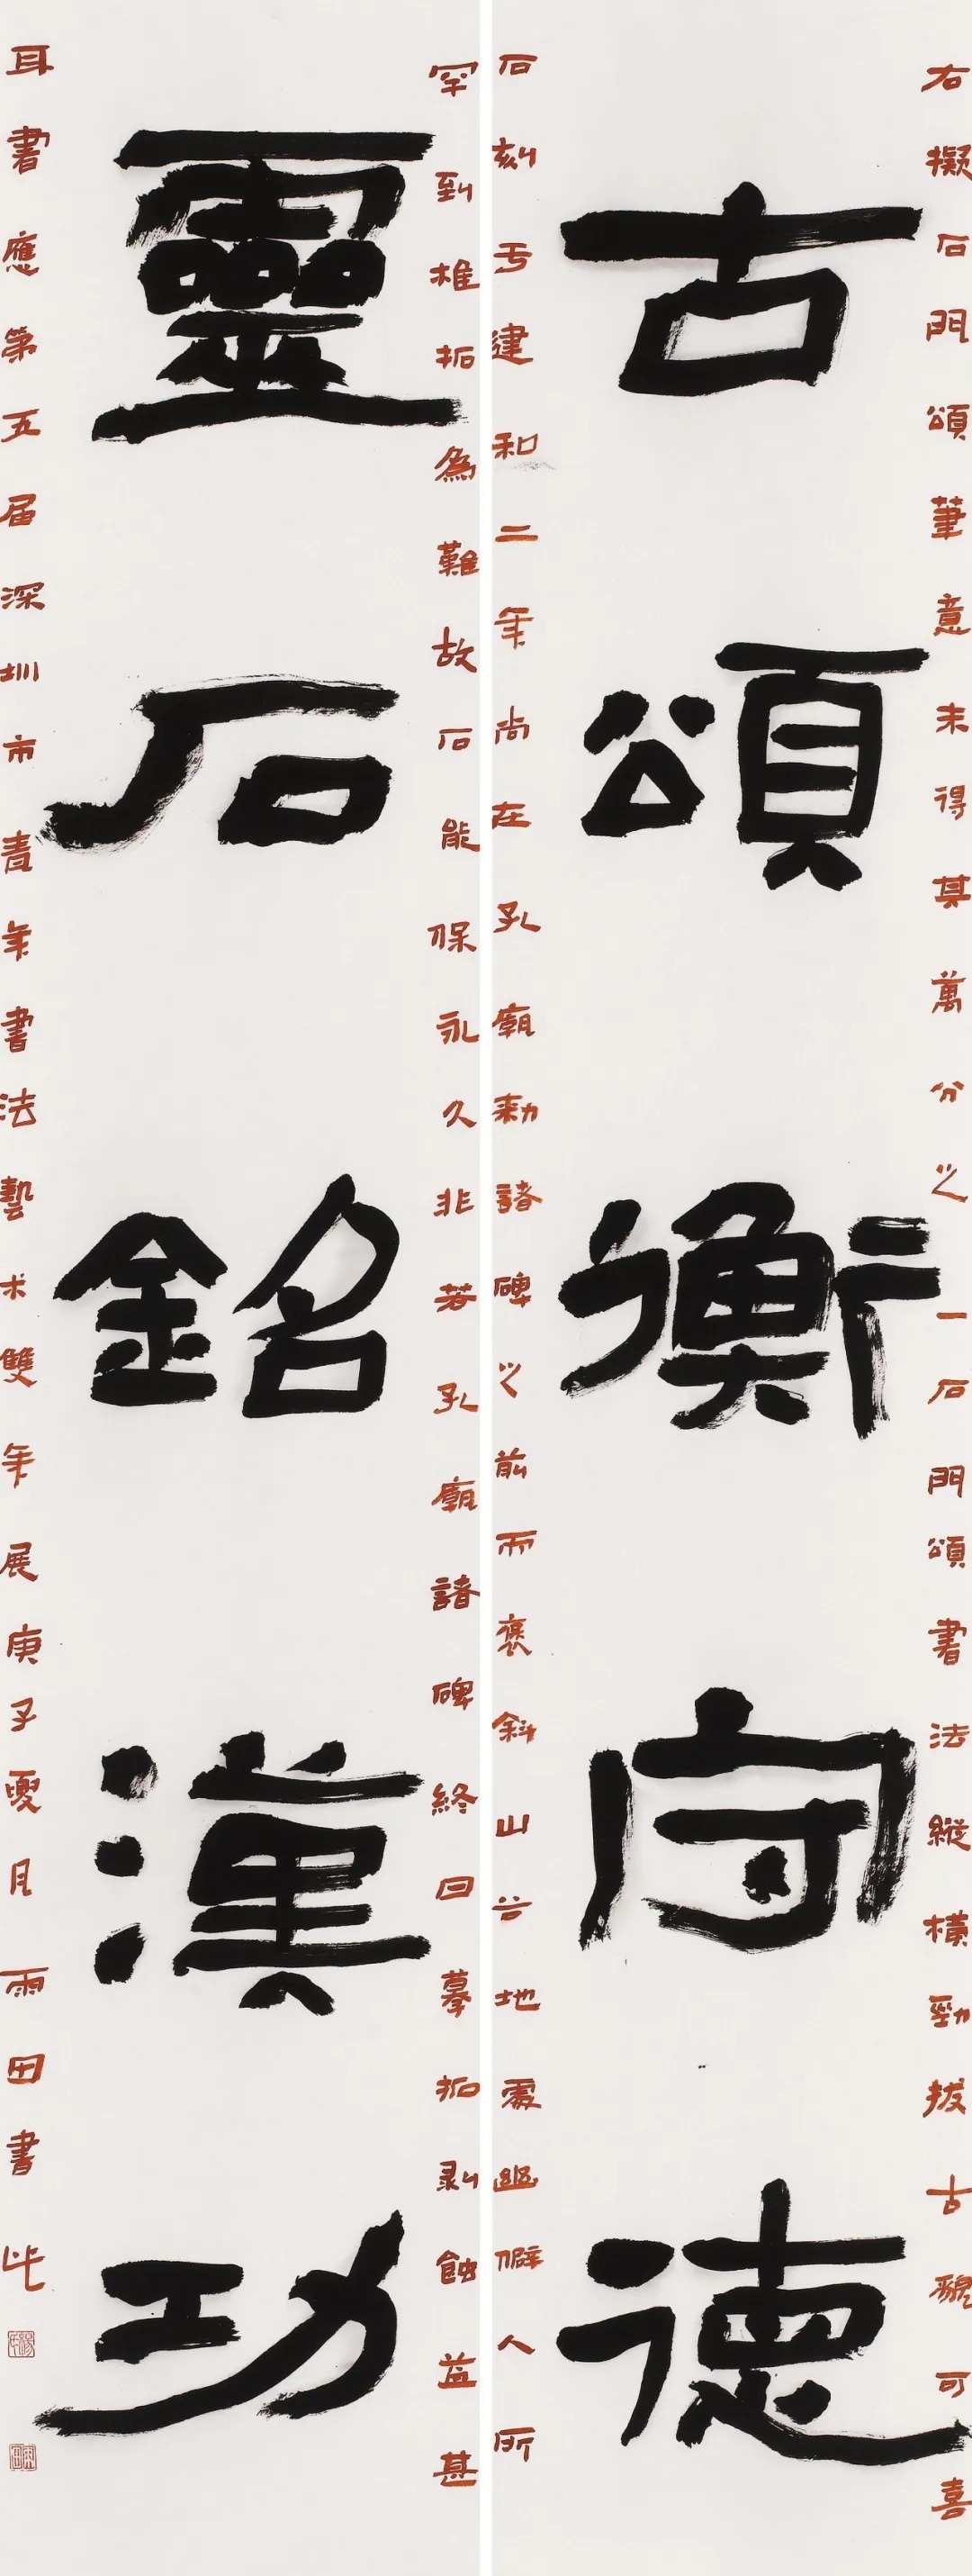 古頌衡守德
靈石銘漢功
右擬石門頌筆意未得其萬分之一石門頌書法縱橫勁拔古貌可喜
石刻于建和二年尚在孔廟勑諸碑之前而褒斜山谷地處幽僻人所
罕到椎拓為難故石能保永久非若孔廟諸碑終日摹拓剥蝕益甚
耳書應第五届深圳市青年書法藝术雙年展庚子夏月雨田書此